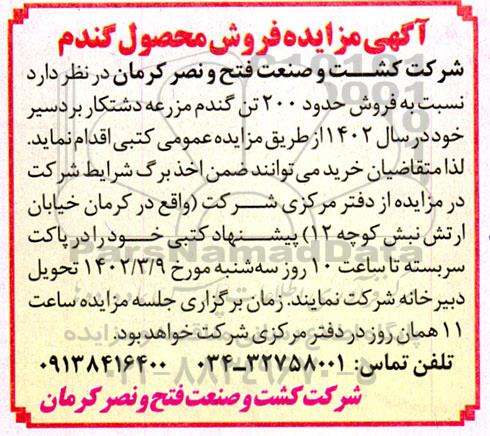 آگهی مزایده فروش محصول گندم
شرکت کشت و صنعت فتح و نصر کرمان در نظر دارد
نسبت به فروش حدود ۲۰۰ تن گندم مزرعه دشتکار بردسیر
خود در سال ۱۴۰۲ از طریق مزایده عمومی کتبی اقدام نماید.
لذا متقاضیان خرید می توانند ضمن اخذ برگ شرایط شرکت
در مزایده از دفتر مرکزی شرکت (واقع در کرمان خیابان
ارتش نبش کوچه ۱۲) پیشنهاد کتبی خود را در پاکت
سربسته تا ساعت ۱۰ روز سه شنبه مورخ ۱۴۰۲/۳/۹ تحویل
دبیرخانه شرکت نمایند. زمان برگزاری جلسه مزایده ساعت
۱۱ همان روز در دفتر مرکزی شرکت خواهد بود.
تلفن تماس: ۳۲۷۵۸۰۰۱-۰۳۴ ۰۹۱۳۸۴۱۶۴۰۰
شرکت کشت و صنعت فتح و نصر کرمان
ParsNamadData